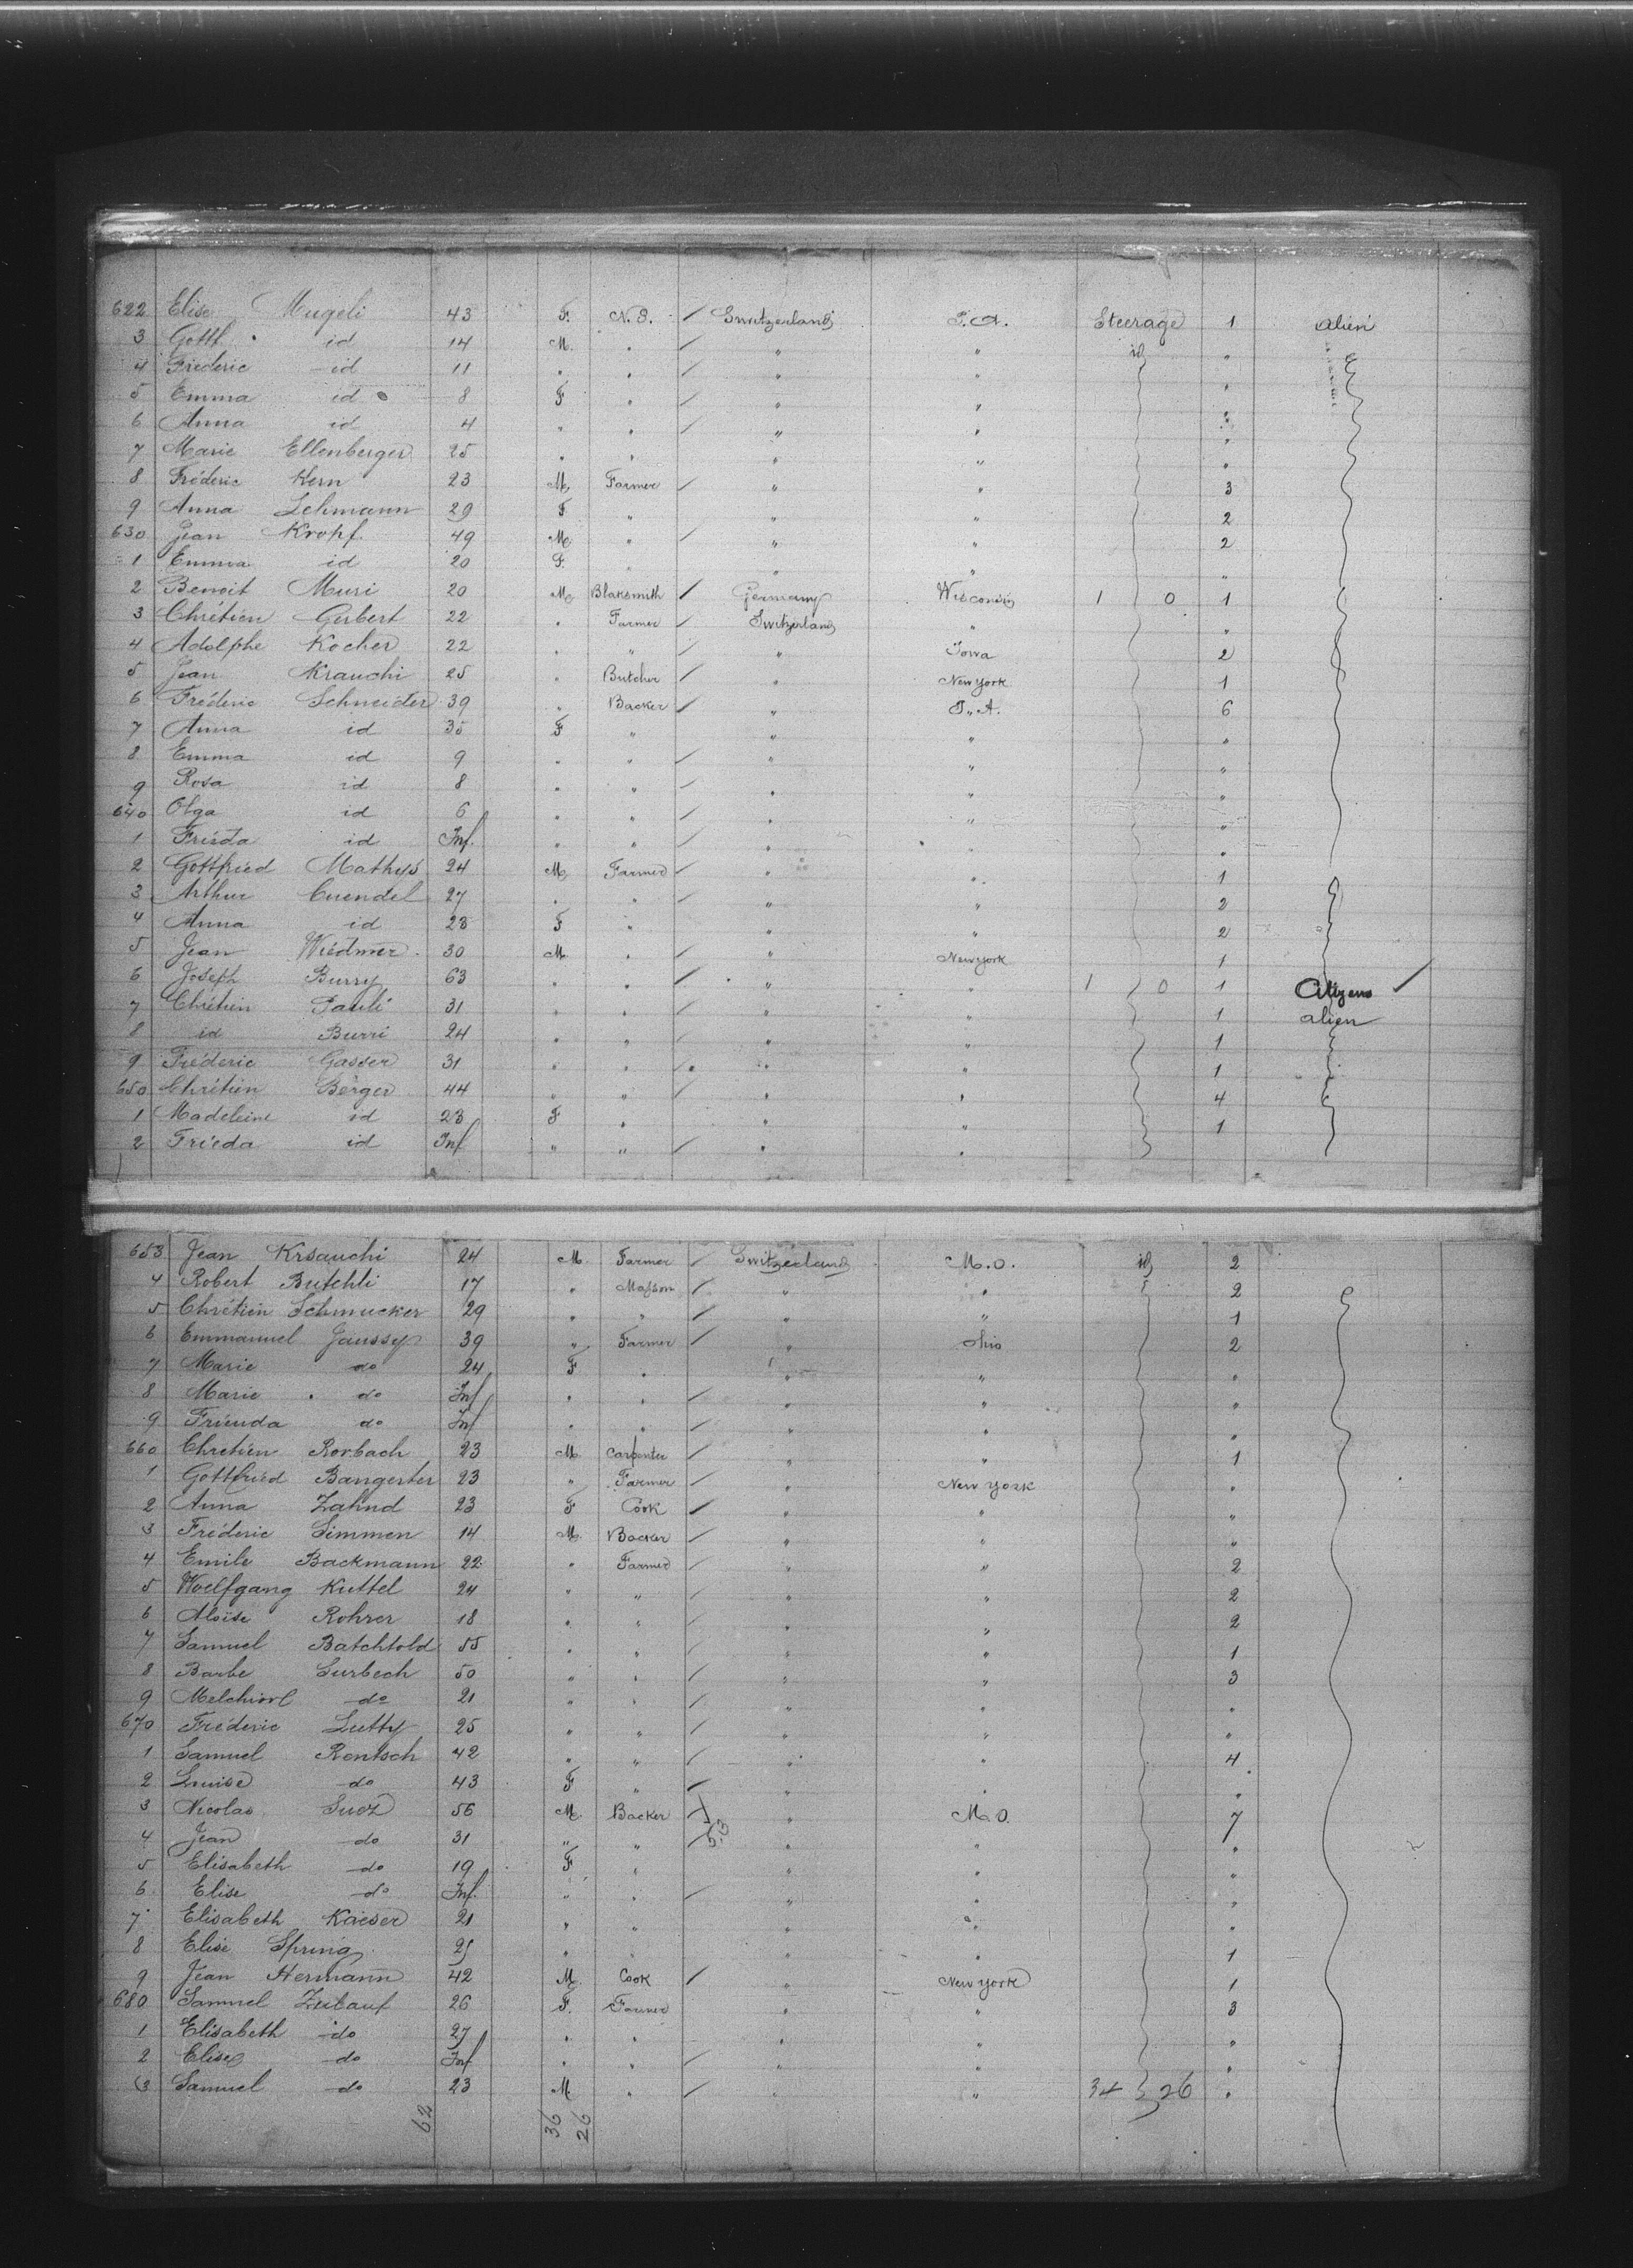 622 Elise Mugeli 43 F. N.O. / Switzerland P.A. Steerage 1 alien
3 Gottl. id 14 M. " / " " id "
4 Frédéric id 11 " " / " " "
5 Emma id 8 F " / " " "
6 Anna id 4 " " / " " "
7 Marie Ellenberger 25 " " " " "
8 Fréderic Kern 23 M. Farmer / " " 3
9 Anna Lehmann 29 F " " " 2
630 Jean Kropf. 49 M. " / " " 2
1 Emma id 20 F. " " " "
2 Benoit Muri 20 M. Blaksmith / Germany Wisconsin 1 0 1
3 Chrétien Gerbert 22 " Farmer / Switzerland " "
4 Adolphe Kocher 22 " " / " Iowa 2
5 Jean Krauchi 25 " Butcher / " New york 1
6 Fréderic Schneider 39 " Backer / " P.A. 6
7 Anna id 35 F " " " "
8 Emma id 9 " " / " " "
9 Rosa id 8 " " / " " "
640 Olga id 6 " " / " " "
1 Frieda id Inf. " " / " " "
2 Gottfried Mathys 24 M. Farmer / " " 1
3 Arthur Cuendel 27 " " / " " 2
4 Anna id 28 F " " " 2
5 Jean Wiedmer 30 M. " / " New york 1
6 Joseph Burry 63 " " / " " 1 0 1 Citizens ✓
7 Chrétien Pauli 31 " " / " " 1 alien
8 id Burri 24 " " / " " 1
9 Fréderic Gasser 31 " " / " " 1
650 Chrétien Berger 44 " " / " " 4
1 Madeleine id 23 F " " " 1
2 Frieda id Inf " " / " "
653 Jean Krsauchi 24 M. Farmer / Switzerland M.O. id 2
4 Robert Butchli 17 " Masson / " " 2
5 Chrétien Schmucker 29 " " / " " 1
6 Emmanuel Jaussy 39 " Farmer / " Ohio 2
7 Marie do 24 F " " " "
8 Marie do Inf " " / " " "
9 Frienda do Inf " " / " " "
660 Chretien Rorbach 23 M. Carpenter / " " 1
1 Gottfried Bangerter 23 " Farmer / " New York "
2 Anna Zahnd 23 F Cook / " " "
3 Fréderic Simmen 14 M. Backer / " " "
4 Emile Backmann 22 " Farmer / " " 2
5 Woelfgang Kuttel 24 " " / " " 2
6 Aloïse Rohrer 18 " " / " " 2
7 Samuel Batchtold 55 " " / " " 1
8 Barbe Surbech 50 " " / " " 3
9 Melchiorl do 21 " " / " " "
670 Fréderic Lutty 25 " " / " " "
1 Samuel Rentsch 42 " " / " " 4
2 Luise do 43 F " / " " "
3 Nicolas 56 M. Backer / " M.O. 7
4 Jean do 31 " " / " " "
5 Elisabeth do 19 F " " " "
6 Elise do Inf. " " / " " "
7 Elisabeth Kaeser 21 " " " " "
8 Elise Spring 25 " " " " 1
9 Jean Hermann 42 M. Cook / " New york 1
680 Samuel Zurbauf 26 F. Farmer " " 3
1 Elisabeth do 27 " " " " "
2 Elise do Inf " " / " " "
3 Samuel do 23 M. " " " 34 26 "
62 36 26